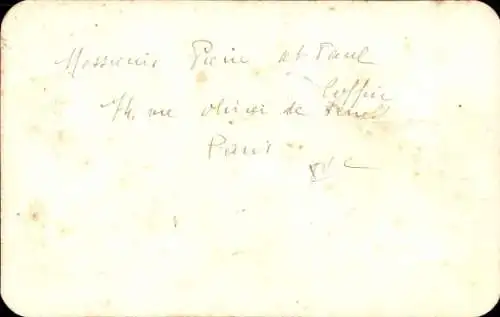 Messieurs Pierre et Paul
Coffin
74, rue olivier de Serres
Paris
XVe